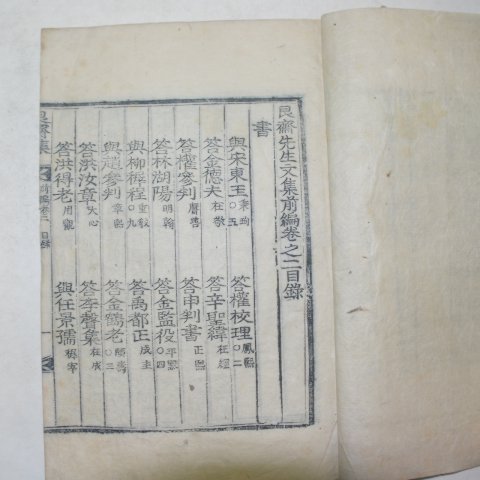 艮齋先生文集前編卷之二目錄
書
與宋東玉秉珣○五 答權校理鳳熙○二
答金德夫 答辛聖緯
答權參判膺善 答申判書正熙
答林湖陽翰 答金監役平熙○四
與柳稚程重教○九 答禹都正成圭
與趙參判章熙 答金鶴老○三
答洪汝章大心 答李聲集
答洪得老 與任景孺
艮齋集 前編卷二 目錄 一